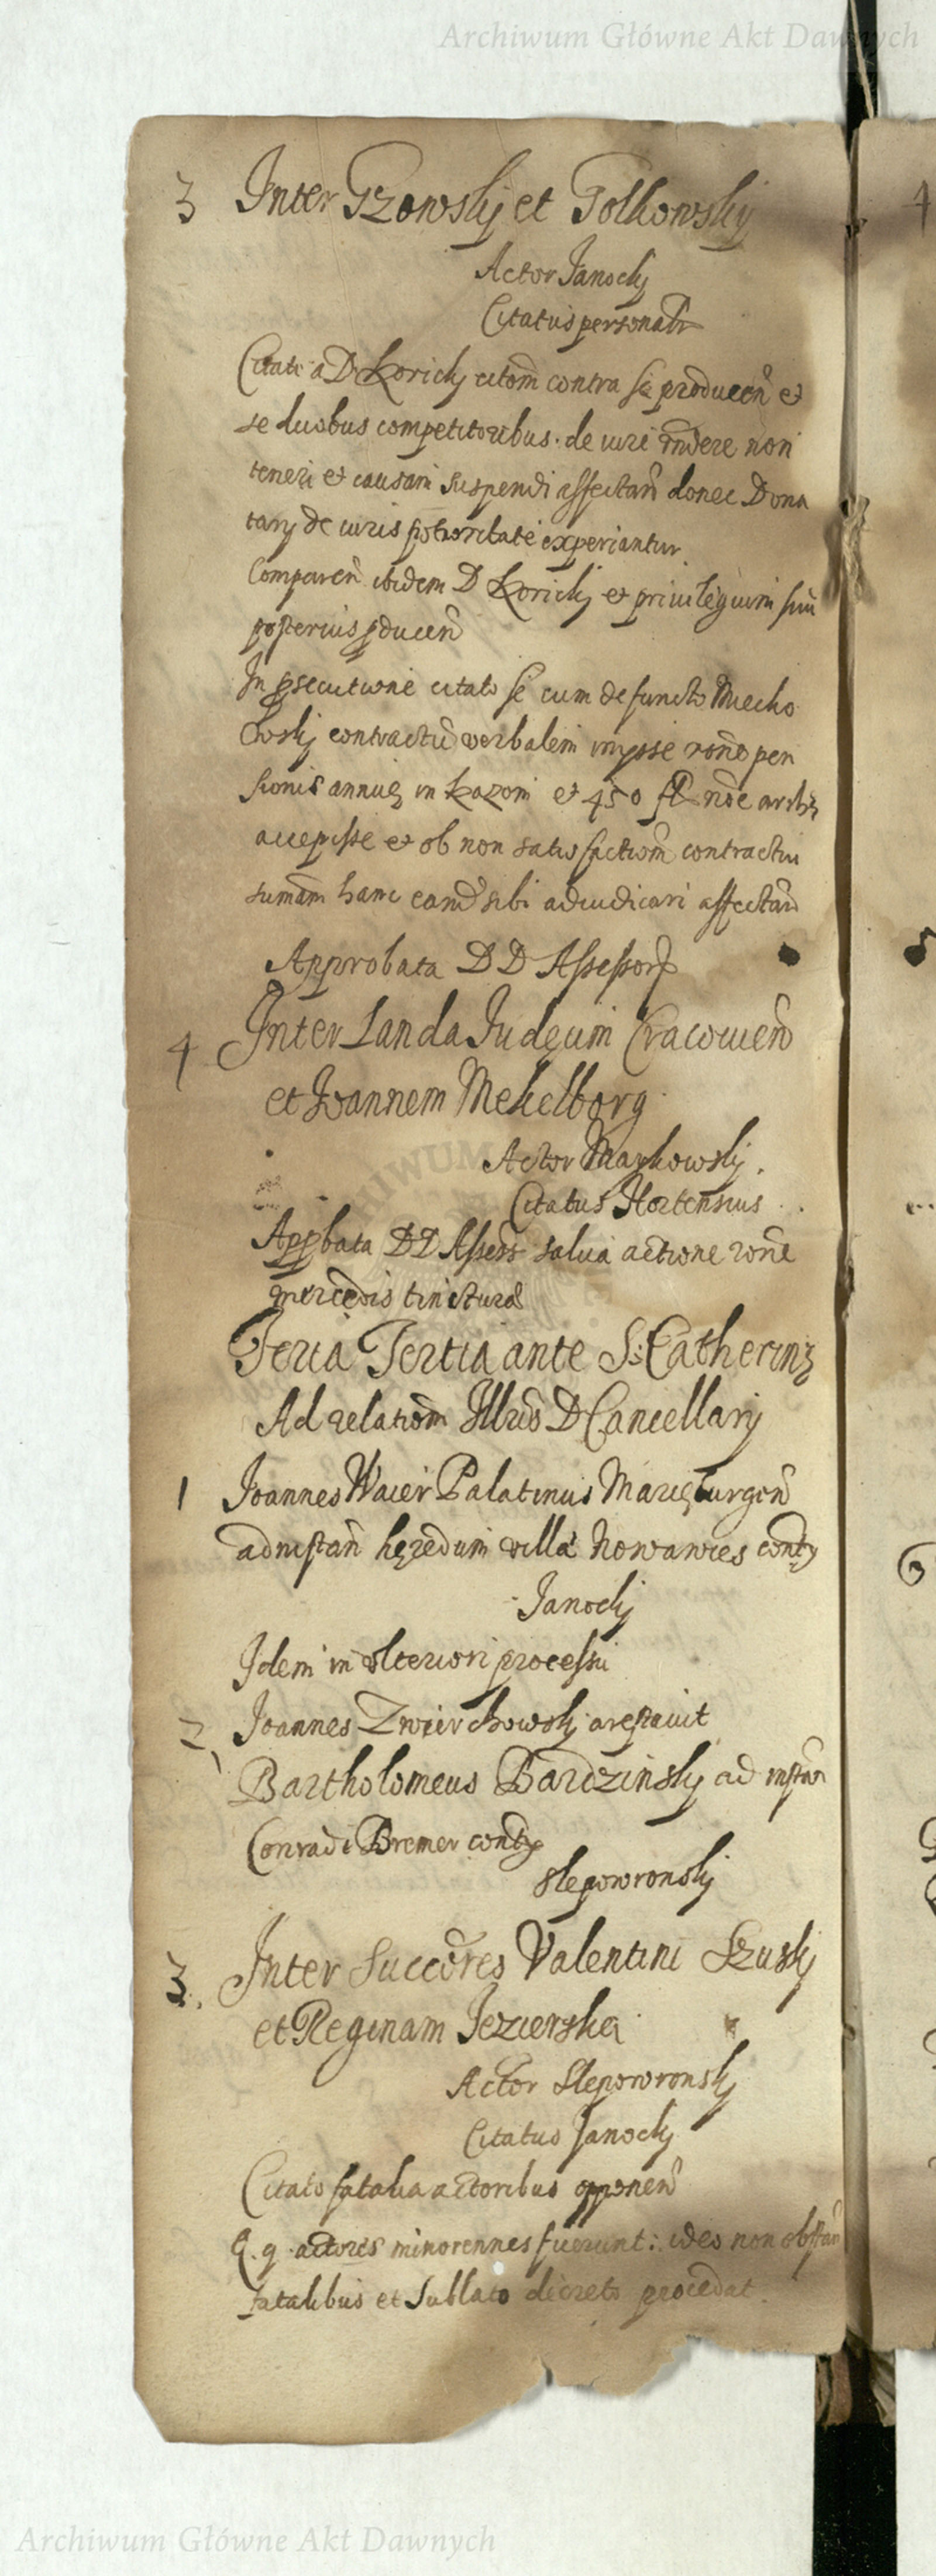 Archiwum Główne Akt Dawnych
3 Inter Gzowskÿ et Golkowskÿ
Actor Janockÿ
Citatus personalr
Citati a D Korickÿ citom contra se producen et
se duobus competitoribus de iure rndere non
teneri et causam suspendi affectan donec Dona
tarÿ de iuris potioritate experiantur
Comparen ibidem D Korickÿ et privilegium suu
posterius pducen
In psecutione citato se cum defuncto Miecho
wskÿ contractu verbalem inysse rone pen
sionis annuę in Kazom et 450 fl noe
accepisse et ob non satisfactiom contractui
sumam hanc eand sibi adiudicari affectan
Approbata D D Assessor
4 Inter Landa Iudęum Cracovien
et Joannem Mekelborg
Actor Markowskÿ
Citatus Hortensius
Appbata DD Assess salva actione rone
mercedis tincturæ
Feria Tertia ante S. Catherinę
Ad relatiom Illris D Cancellarÿ
1 Joannes Waier Palatinus Marięburgen
ad nstan hęredum villæ Nowawies cont
Janockÿ
Idem in ulteriori processu
2 Joannes Zwierchowskÿ arestavit
Bartholomeus Bardzinskÿ ad instan
Conradi Bremer cont
Slepowronskÿ
3. Inter Succores Valentini Szuskÿ
et Reginam Jezierska
Actor Slepowronskÿ
Citatus Janockÿ
Citato fatalia actoribus opponen
E. q. actores minorennes fuerunt: ideo non obstan
fatalibus et sublato decreto procedat
Archiwum Główne Akt Dawnych